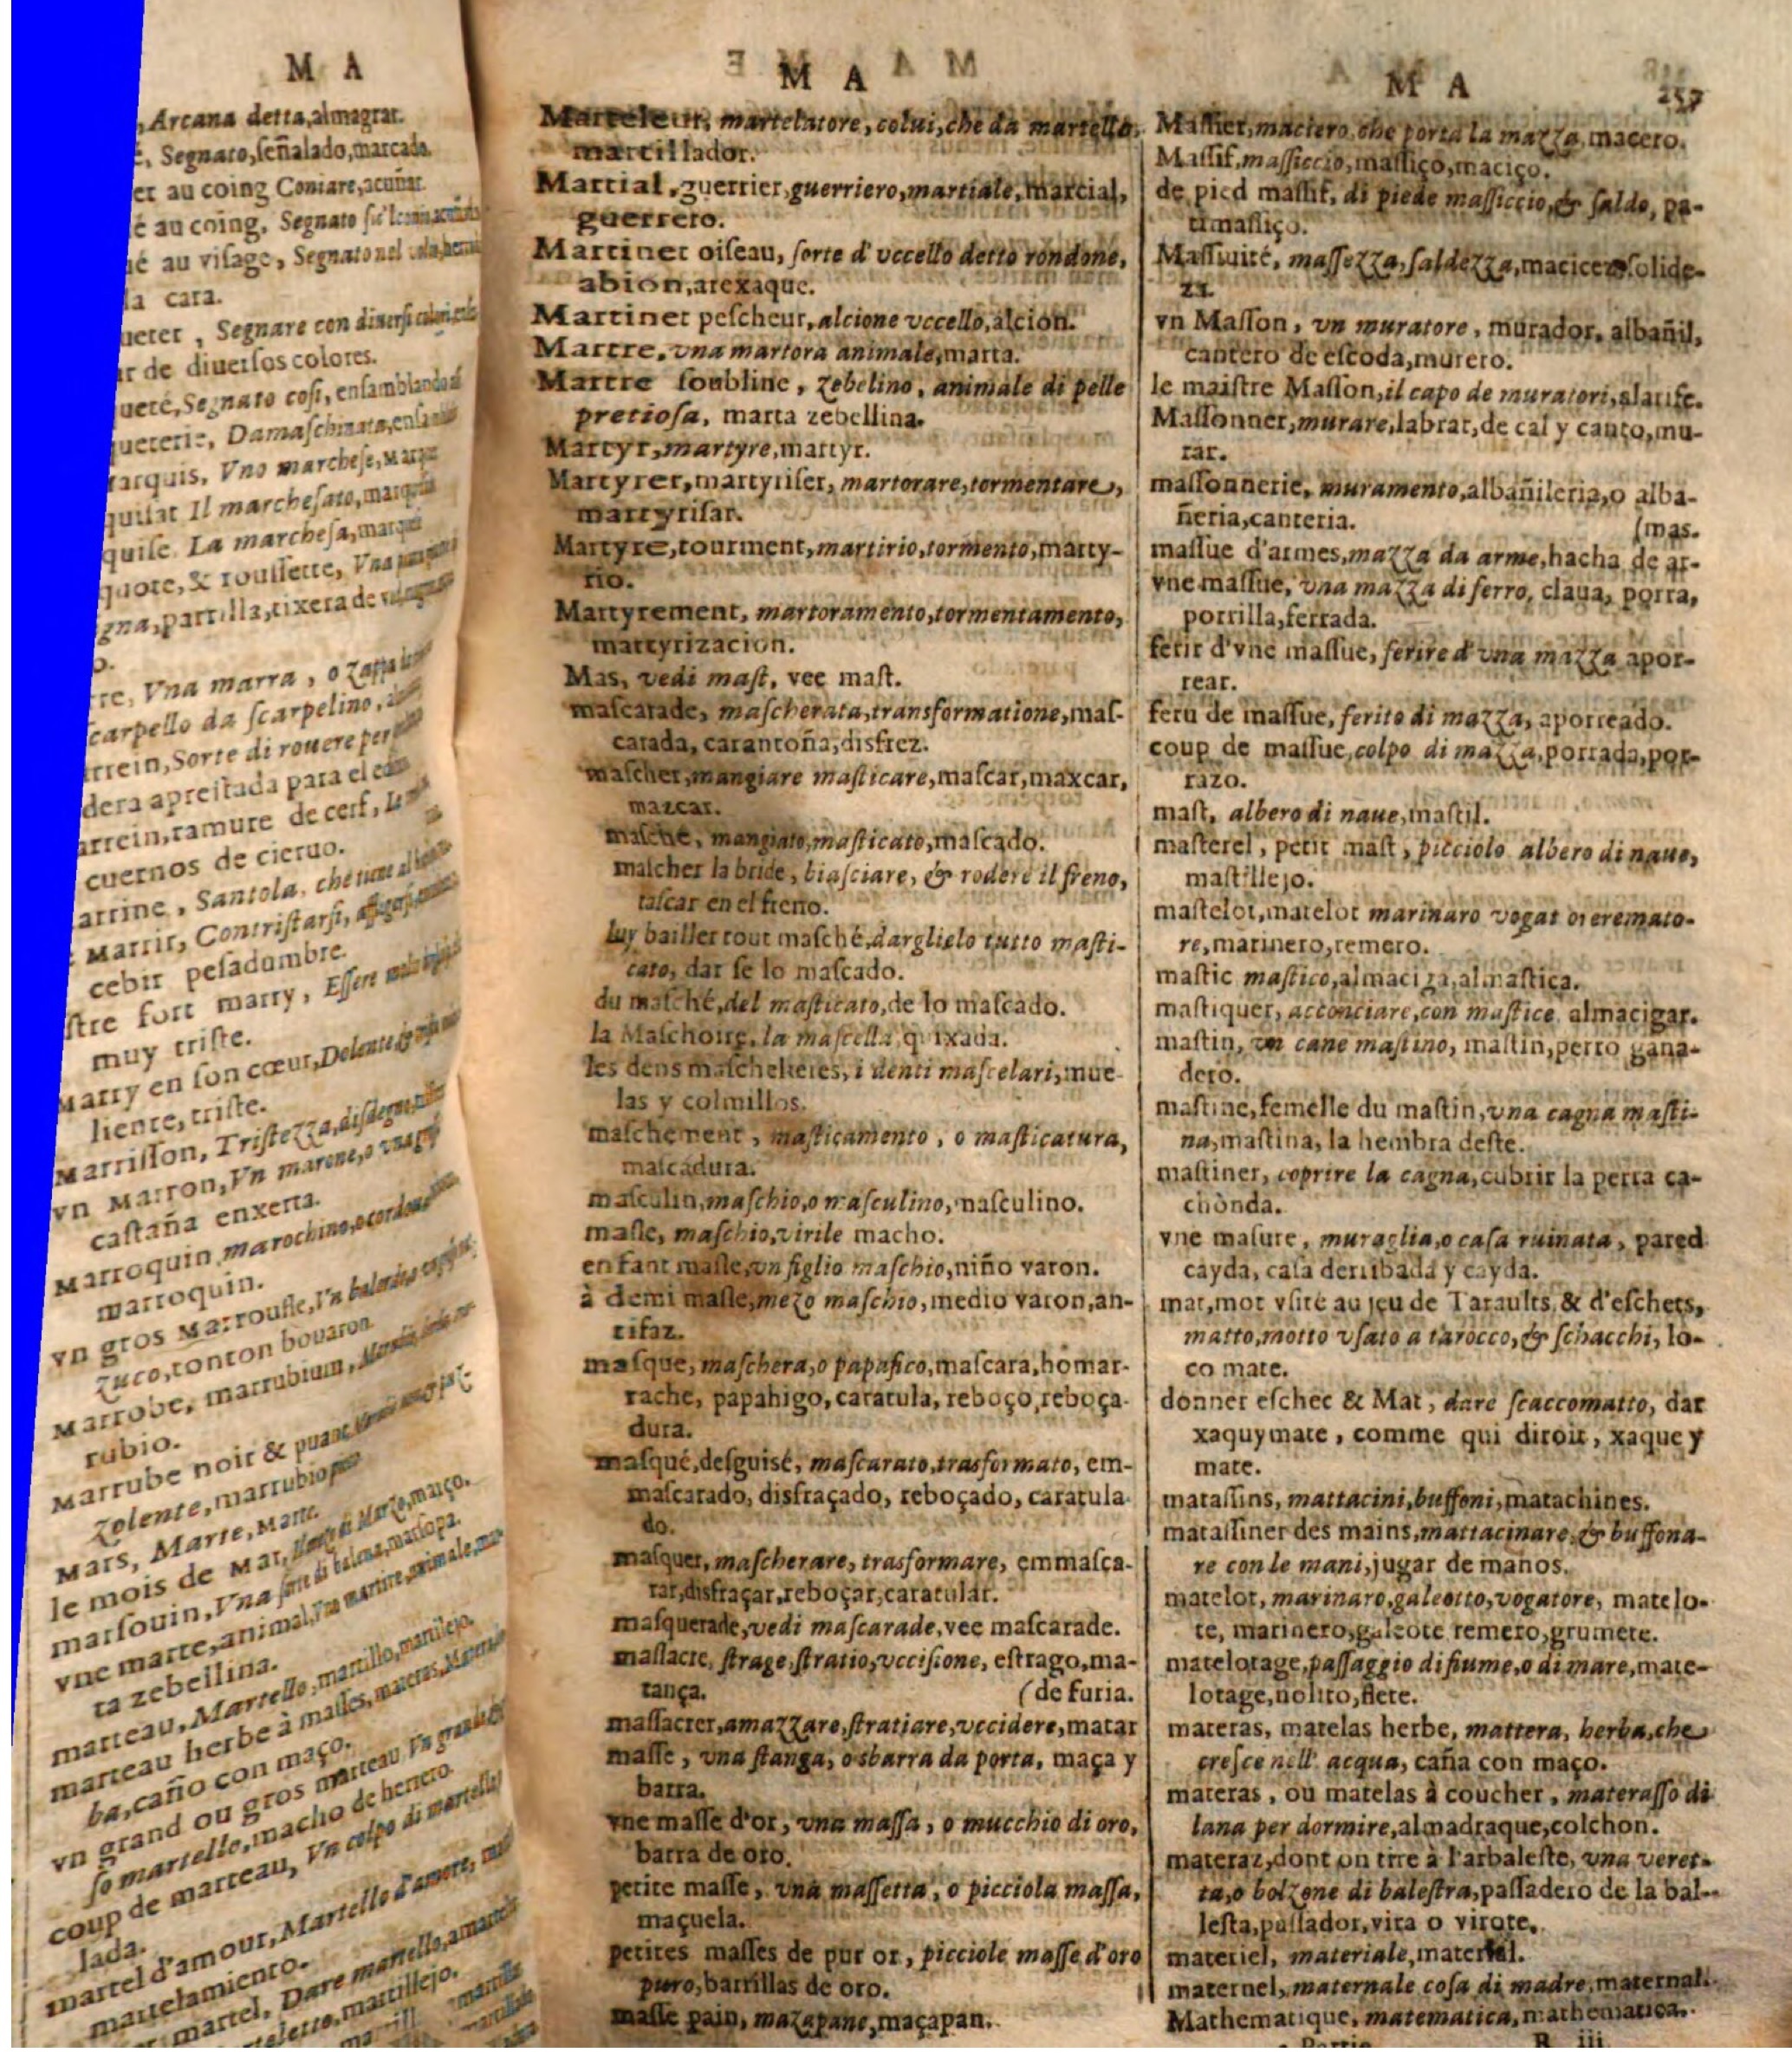 M A
Arcana detta, almagrar.
Segnato, ſeñalado, marcado.
au coing Coniare, acuñar.
au coing, Segnato
au viſage, Segnato nel
la cara.
Segnare con diuerſi
de diuerſos colores.
Segnato coſi, enſamblando
Damaſchinata,
Vno marcheſe,
Il marcheſato,
La marcheſa,
& rouſſette, Vna
partilla, tixera de
Vna marra, o Zappa
ſcarpello da ſcarpelino,
Sorte di rouere per
dera apreſtada para el
ramure de cerf,
cuernos de cieruo.
Santola, che tiene al
Marrir, Contriſtarſi,
cebir peſadumbre.
fort marry, Eſſere
muy triſte.
Marry en ſon cœur, Dolente,
liente, triſte.
Marriſſon, Triſtezza, diſdegno,
vn Marron, Vn marone, o
caſtaña enxerta.
Marroquin, marochino, o cordoa,
marroquin.
vn gros Marroufle, Vn
zuco, tonton bouaron.
Marrobe, marrubium,
rubio.
Marrube noir & puant,
zolente, marrubio
Mars, Marte, Marte.
le mois de Mar, Marzo, março.
marſouin, Vna ſorte di balena, marſopa.
vne marte, animal, animale,
ta zebellina.
marteau, Martello, martillo, martilejo.
marteau herbe à maſſes, materas,
ba, caño con maço.
vn grand ou gros marteau Vn
ſo martello, macho de herrero.
coup de marteau, Vn colpo di martello,
lada.
martel d'amour, Martello d'amore,
martelamiento.
martel, Dare martello,
martillejo.
M A
Marteleur, martelatore, colui, che da martello,
martillador.
Martial, guerrier, guerriero, martiale, marcial,
guerrero.
Martinet oiſeau, ſorte d'vccello detto rondone,
abion, arexaque.
Martinet peſcheur, alcione vccello, alcion.
Martre, vna martora animale, marta.
Martre ſoubline, zebelino, animale di pelle
pretioſa, marta zebellina.
Martyr, martyre, martyr.
Martyrer, martyriſer, martorare, tormentare,
martyriſar.
Martyre, tourment, martirio, tormento, marty-
rio.
Martyrement, martoramento, tormentamento,
martyrizacion.
Mas, vedi maſt, vee maſt.
maſcarade, maſcherata, transformatione, maſ-
carada, carantoña, disfrez.
maſcher, mangiare maſticare, maſcar, maxcar,
mazcar.
maſché, mangiato, maſticato, maſcado.
maſcher la bride, biaſciare, & rodere il freno,
taſcar en el freno.
luy bailler tout maſché, darglielo tutto maſti-
cato, dar ſe lo maſcado.
du maſché, del maſticato, de lo maſcado.
la Maſchoire, la maſcella, quixada.
les dens maſchelieres, i denti maſcelari, mue-
las y colmillos.
maſchement, maſticamento, o maſticatura,
maſcadura.
maſculin, maſchio, o maſculino, maſculino.
maſle, maſchio, virile macho.
enfant maſle, vn figlio maſchio, niño varon.
à demi maſle, mezo maſchio, medio varon, an-
tifaz.
maſque, maſchera, o papafico, maſcara, homar-
rache, papahigo, caratula, reboço, reboça-
dura.
maſqué, deſguisé, maſcarato, trasformato, em-
maſcarado, disfraçado, reboçado, caratula-
do.
maſquer, maſcherare, trasformare, emmaſca-
rar, disfraçar, reboçar, caratular.
maſquerade, vedi maſcarade, vee maſcarade.
maſſacre, ſtrage, ſtratio, vcciſione, eſtrago, ma-
tança. (de furia.
maſſacrer, amazzare, ſtratiare, vccidere, matar
maſſe, vna ſtanga, o sbarra da porta, maça y
barra.
vne maſſe d'or, vna maſſa, o mucchio di oro,
barra de oro.
petite maſſe, vna maſſetta, o picciola maſſa,
maçuela.
petites maſſes de pur or, picciole maſſe d'oro
puro, barrillas de oro.
maſſe pain, mazapane, maçapan.
M A 257
Maſſier, maciero che porta la mazza, macero.
Maſſif, maſſiccio, maſſiço, maciço.
de pied maſſif, di piede maſſiccio, & ſaldo, pa-
timaſſiço.
Maſſiuité, maſſezza, ſaldezza, macicez ſolide-
za.
vn Maſſon, vn muratore, murador, albañil,
cantero de eſcoda, murero.
le maiſtre Maſſon, il capo de muratori, alarife.
Maſſonner, murare, labrar, de cal y canto, mu-
rar.
maſſonnerie, muramento, albañileria, o alba-
ñeria, canteria. (mas.
maſſue d'armes, mazza da arme, hacha de ar-
vne maſſue, vna mazza di ferro, claua, porra,
porrilla, ferrada.
ferir d'vne maſſue, ferire d'vna mazza apor-
rear.
feru de maſſue, ferito di mazza, aporreado.
coup de maſſue, colpo di mazza, porrada, por-
razo.
maſt, albero di naue, maſtil.
maſterel, petit maſt, picciolo albero di naue,
maſtillejo.
maſtelot, matelot marinaro vogat or eremato-
re, marinero, remero.
maſtic maſtico, almaciga, almaſtica.
maſtiquer, acconciare, con maſtice, almacigar.
maſtin, vn cane maſtino, maſtin, perro gana-
dero.
maſtine, femelle du maſtin, vna cagna maſti-
na, maſtina, la hembra deſte.
maſtiner, coprire la cagna, cubrir la perra ca-
chònda.
vne maſure, muraglia, o caſa ruinata, pared
cayda, caſa derribada y cayda.
mat, mot vſité au jeu de Taraults, & d'eſchets,
matto, motto vſato a tarocco, & ſchacchi, lo-
co mate.
donner eſchec & Mat, dare ſcaccomatto, dar
xaquymate, comme qui diroit, xaque y
mate.
mataſſins, mattacini, buffoni, matachines.
mataſſiner des mains, mattacinare, & buffona-
re con le mani, jugar de manos.
matelot, marinaro, galeotto, vogatore, matelo-
te, marinero, galeote remero, grumete.
matelotage, paſſaggio di fiume, o di mare, mate-
lotage, nolito, flete.
materas, matelas herbe, mattera, herba, che
creſce nell' acqua, caña con maço.
materas, ou matelas à coucher, materaſſo di
lana per dormire, almadraque, colchon.
materaz, dont on tire à l'arbaleſte, vna veret-
ta, o bolzone di baleſtra, paſſadero de la bal-
leſta, paſſador, vira o virote.
materiel, materiale, material.
maternel, maternale coſa di madre, maternal.
Mathematique, matematica, mathematica.
Partie R iii